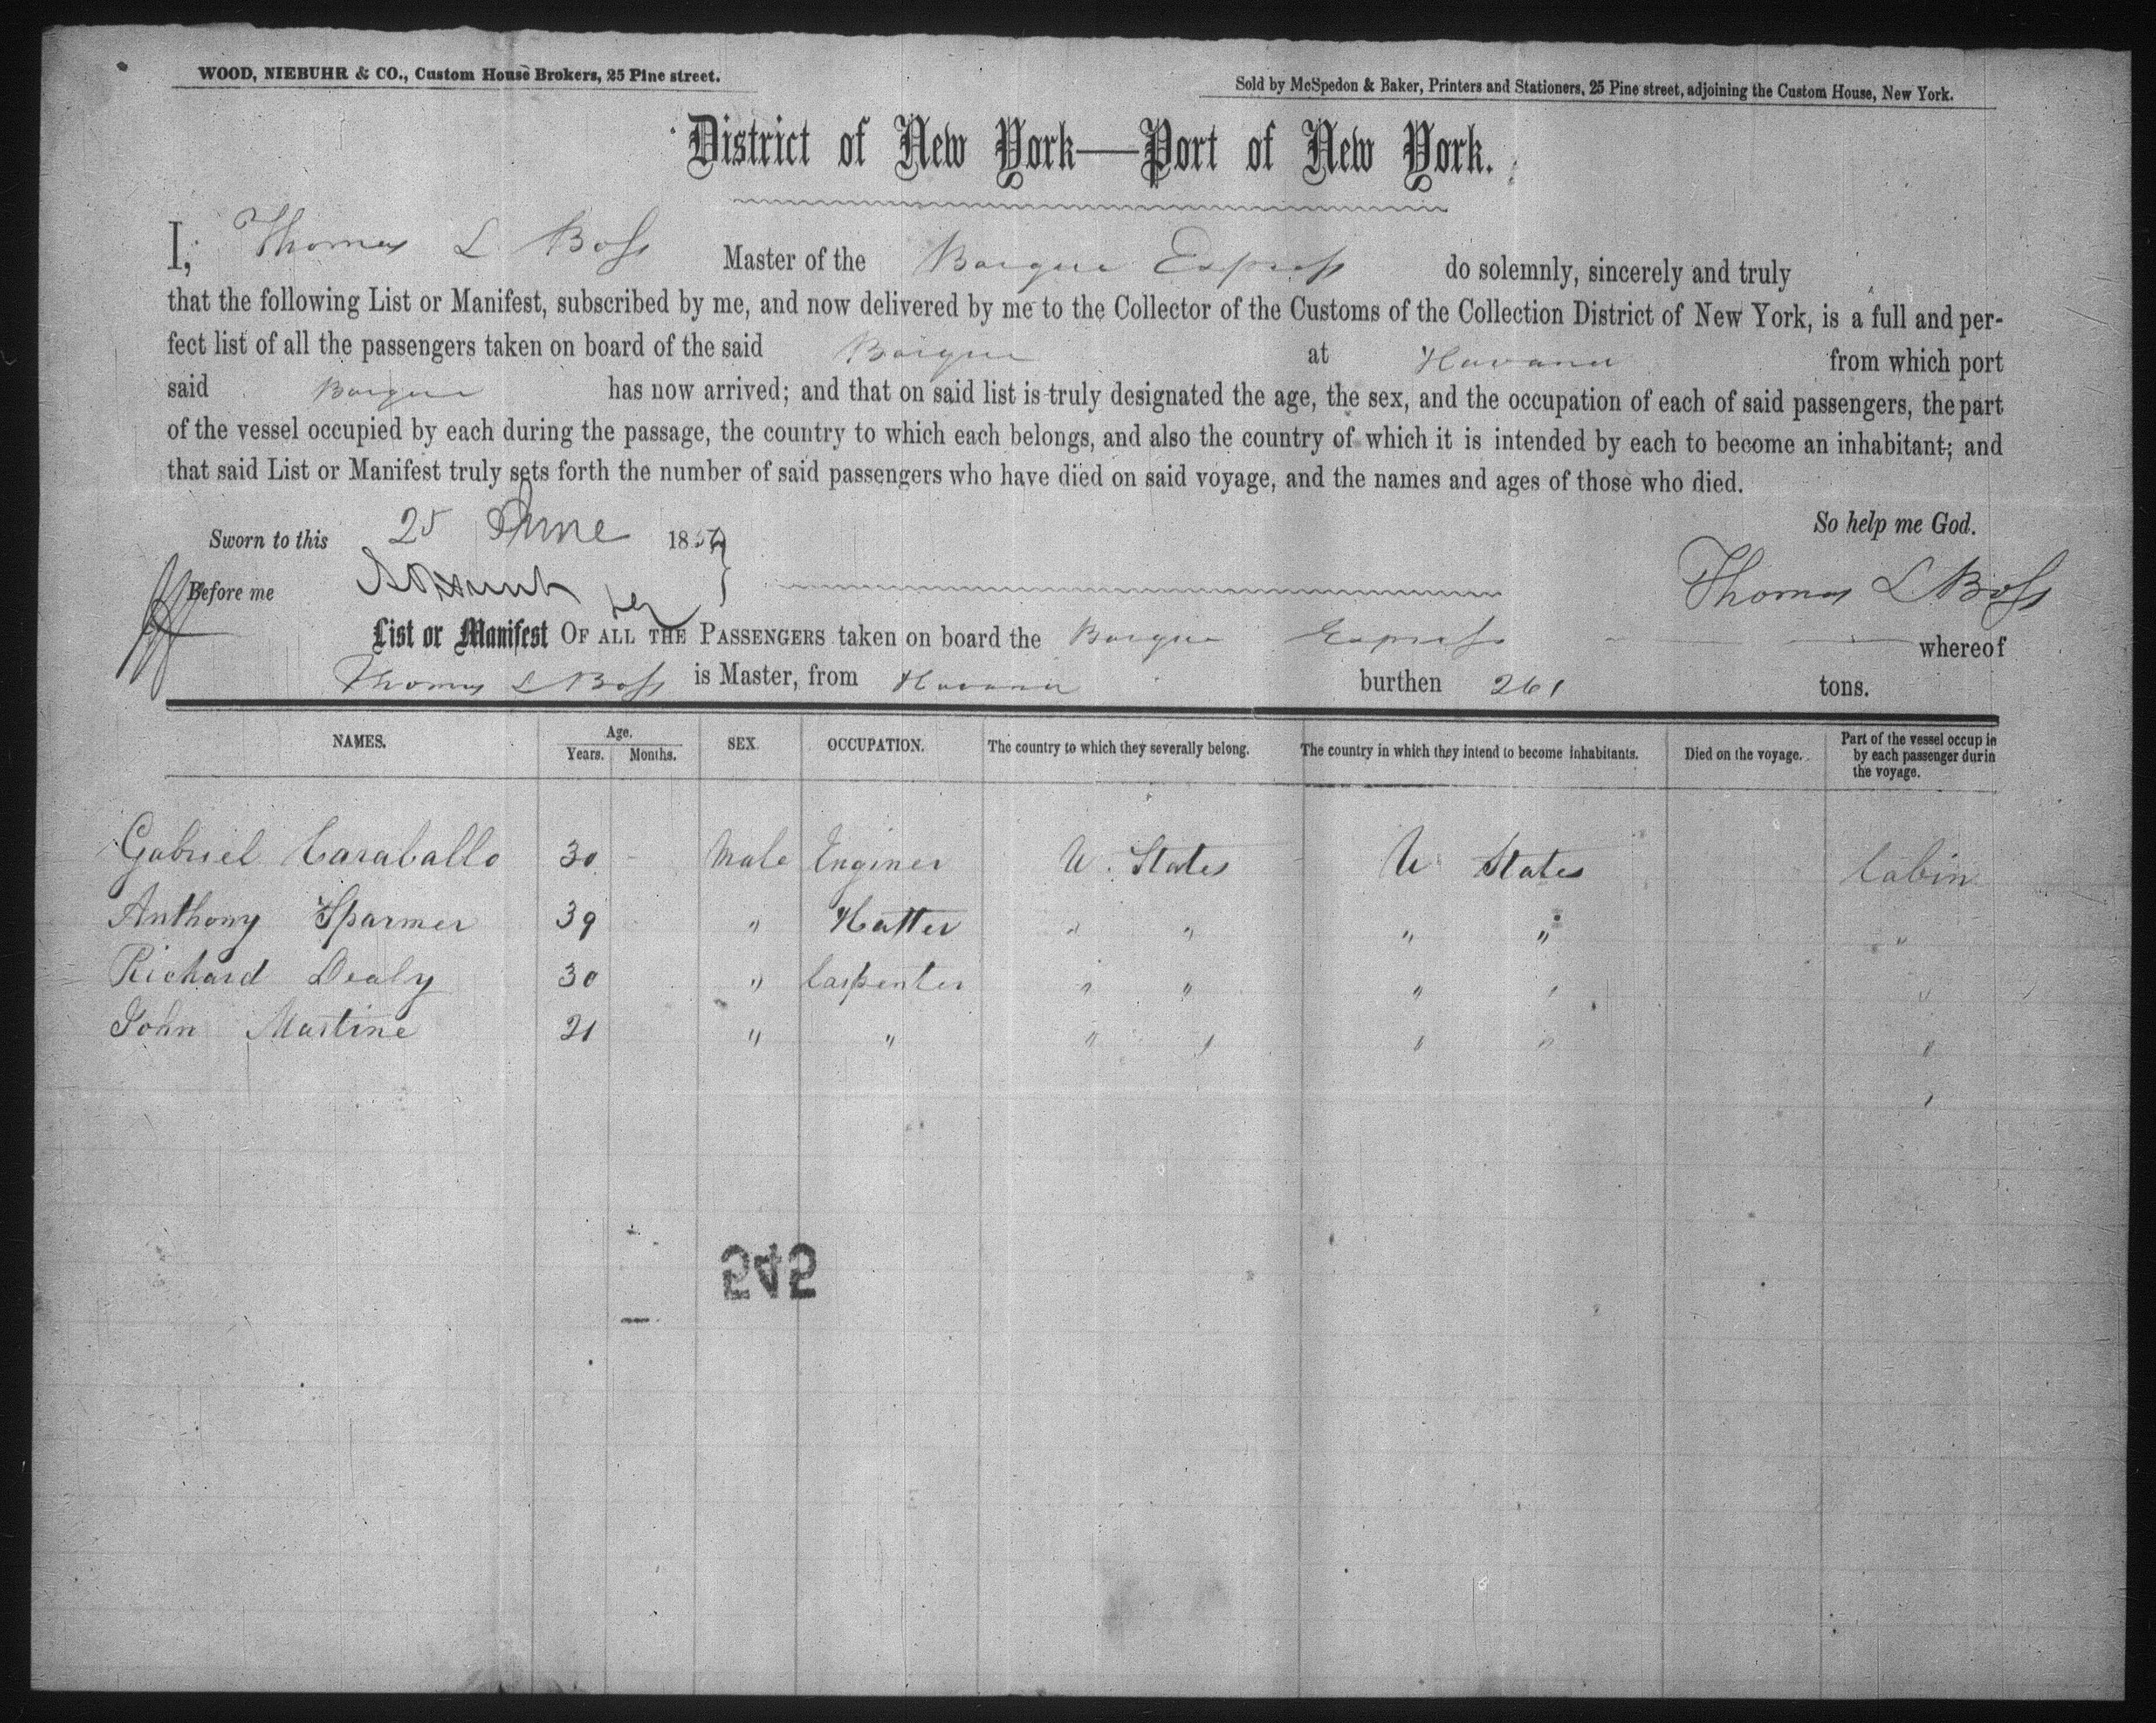 WOOD, NIEBUHR & CO., Custom House Brokers, 25 Pine street.
Sold by McSpedon & Baker, Printers and Stationers, 25 Pine street, adjoining the Custom House, New York.
District of New York—Port of New York.
I, Thomas L Boss Master of the Barque Express do solemnly, sincerely and truly
that the following List or Manifest, subscribed by me, and now delivered by me to the Collector of the Customs of the Collection District of New York, is a full and per-
fect list of all the passengers taken on board of the said Barque at Havana from which port
said Barque has now arrived; and that on said list is truly designated the age, the sex, and the occupation of each of said passengers, the part
of the vessel occupied by each during the passage, the country to which each belongs, and also the country of which it is intended by each to become an inhabitant; and
that said List or Manifest truly sets forth the number of said passengers who have died on said voyage, and the names and ages of those who died.
So help me God.
Sworn to this 25 June 185
Before me
Thomas L Boss
List or Manifest OF ALL THE PASSENGERS taken on board the Barque Express whereof
Thomas L Boss is Master, from Havana burthen 261 tons.
NAMES. Age. Years. Months. SEX. OCCUPATION. The country to which they severally belong. The country in which they intend to become inhabitants. Died on the voyage. Part of the vessel occup ie by each passenger durin the voyage.
Gabriel Caraballo 30 - Male Enginer U. States U States Cabin
Anthony Sparmer 39 " Hatter " " " " "
Richard Dealy 30 " Carpenter " " " " "
John Mastine 21 " " " " " " "
242